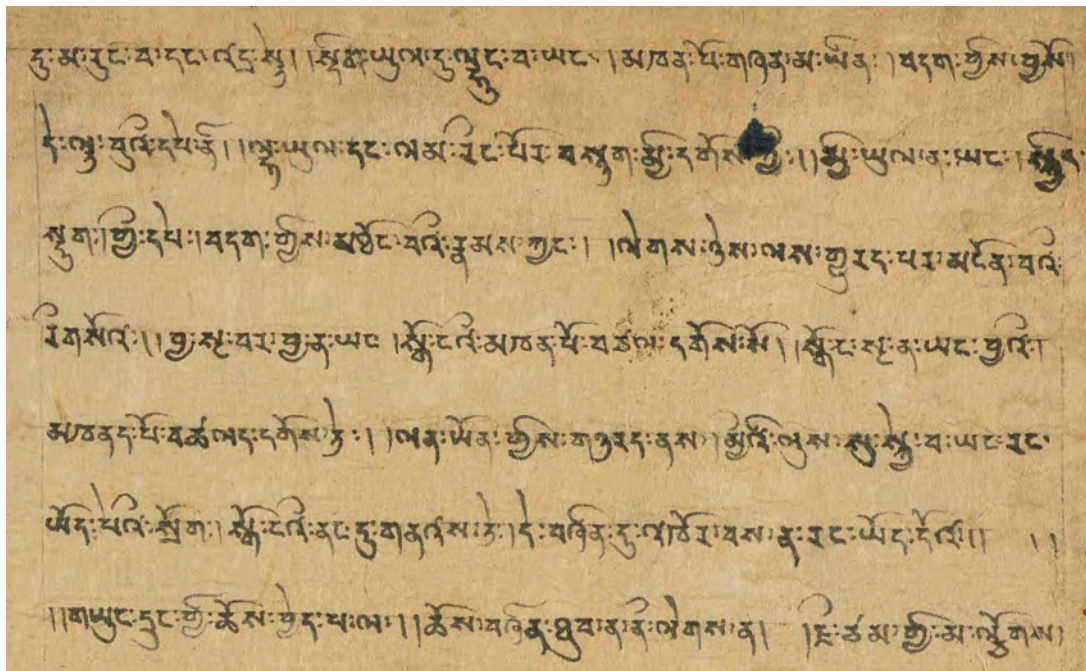 དུ་མ་རུང་བ་དང་འདྲ་སྟེ། །སྡིག་ཡུལ་དུ་ལྟུང་བ་ཡང་། །མཁན་པོ་གཞན་མ་ཡིན་། །བདག་གྱིས་བྱསོ།
དེ་ལྟ་བུའི་དཔེ་ནི། །ལྷ་ཡུལ་དང་ལམ་རིང་པོར་བསྟག་མྱི་དགོས་ཀྱི་། །མྱི་ཡུལ་ན་ཡང་། །སྐྱིད་
སྡུག་།གྱི་དཔེ་།བདག་གྱིས་མཐོང་བའི་རྣམས་ཀྱང་། །ལེགས་ཉེས་ལས་གྱུརད་པར་མངོན་བའི་
རིགསོའི་།།བྱ་སྲ་བར་བྱ་ན་ཡང་ །སྒོ་ངའི་མཁན་པོ་བཙལ་དགོས་སོ། །སྒོ་ང་སྲ་ན་ཡང་བྱའི་།
མཁནད་པོ་བཚལད་དགོས་ཏེ་། །ལན་ཡོན་གྱིས་གཏུརད་ནས་།མྱིའི་ལུས་སུ་སྐྱེ་བ་ཡང་རང་
ཡོད་པའི་སྲོག་། སྒོ་ངའི་ནང་དུ་གནས་ཏེ་།དེ་བཞིན་དུ་འཁོར་བས་ན་རང་ཡོད་དོའོ།། །།
།།གཡུང་དྲུང་གྱི་ཆོས་བྱེད་པ་ལ་།།ཆོས་བཞིན་ཐུབ་ན་ནི་ལེགས་ན། །ངོ་ཙམ་གྱི་མ་ལྕོགས།